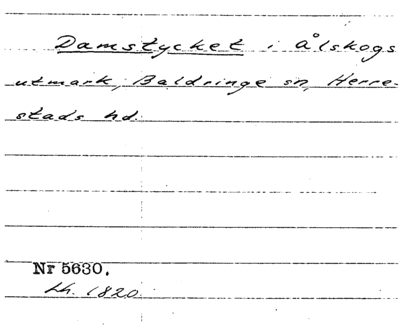 Damstycket i Ålskogs
utmark, Baldringe sn, Herre-
stads hd.
Nr 5630.
Lh. 1820